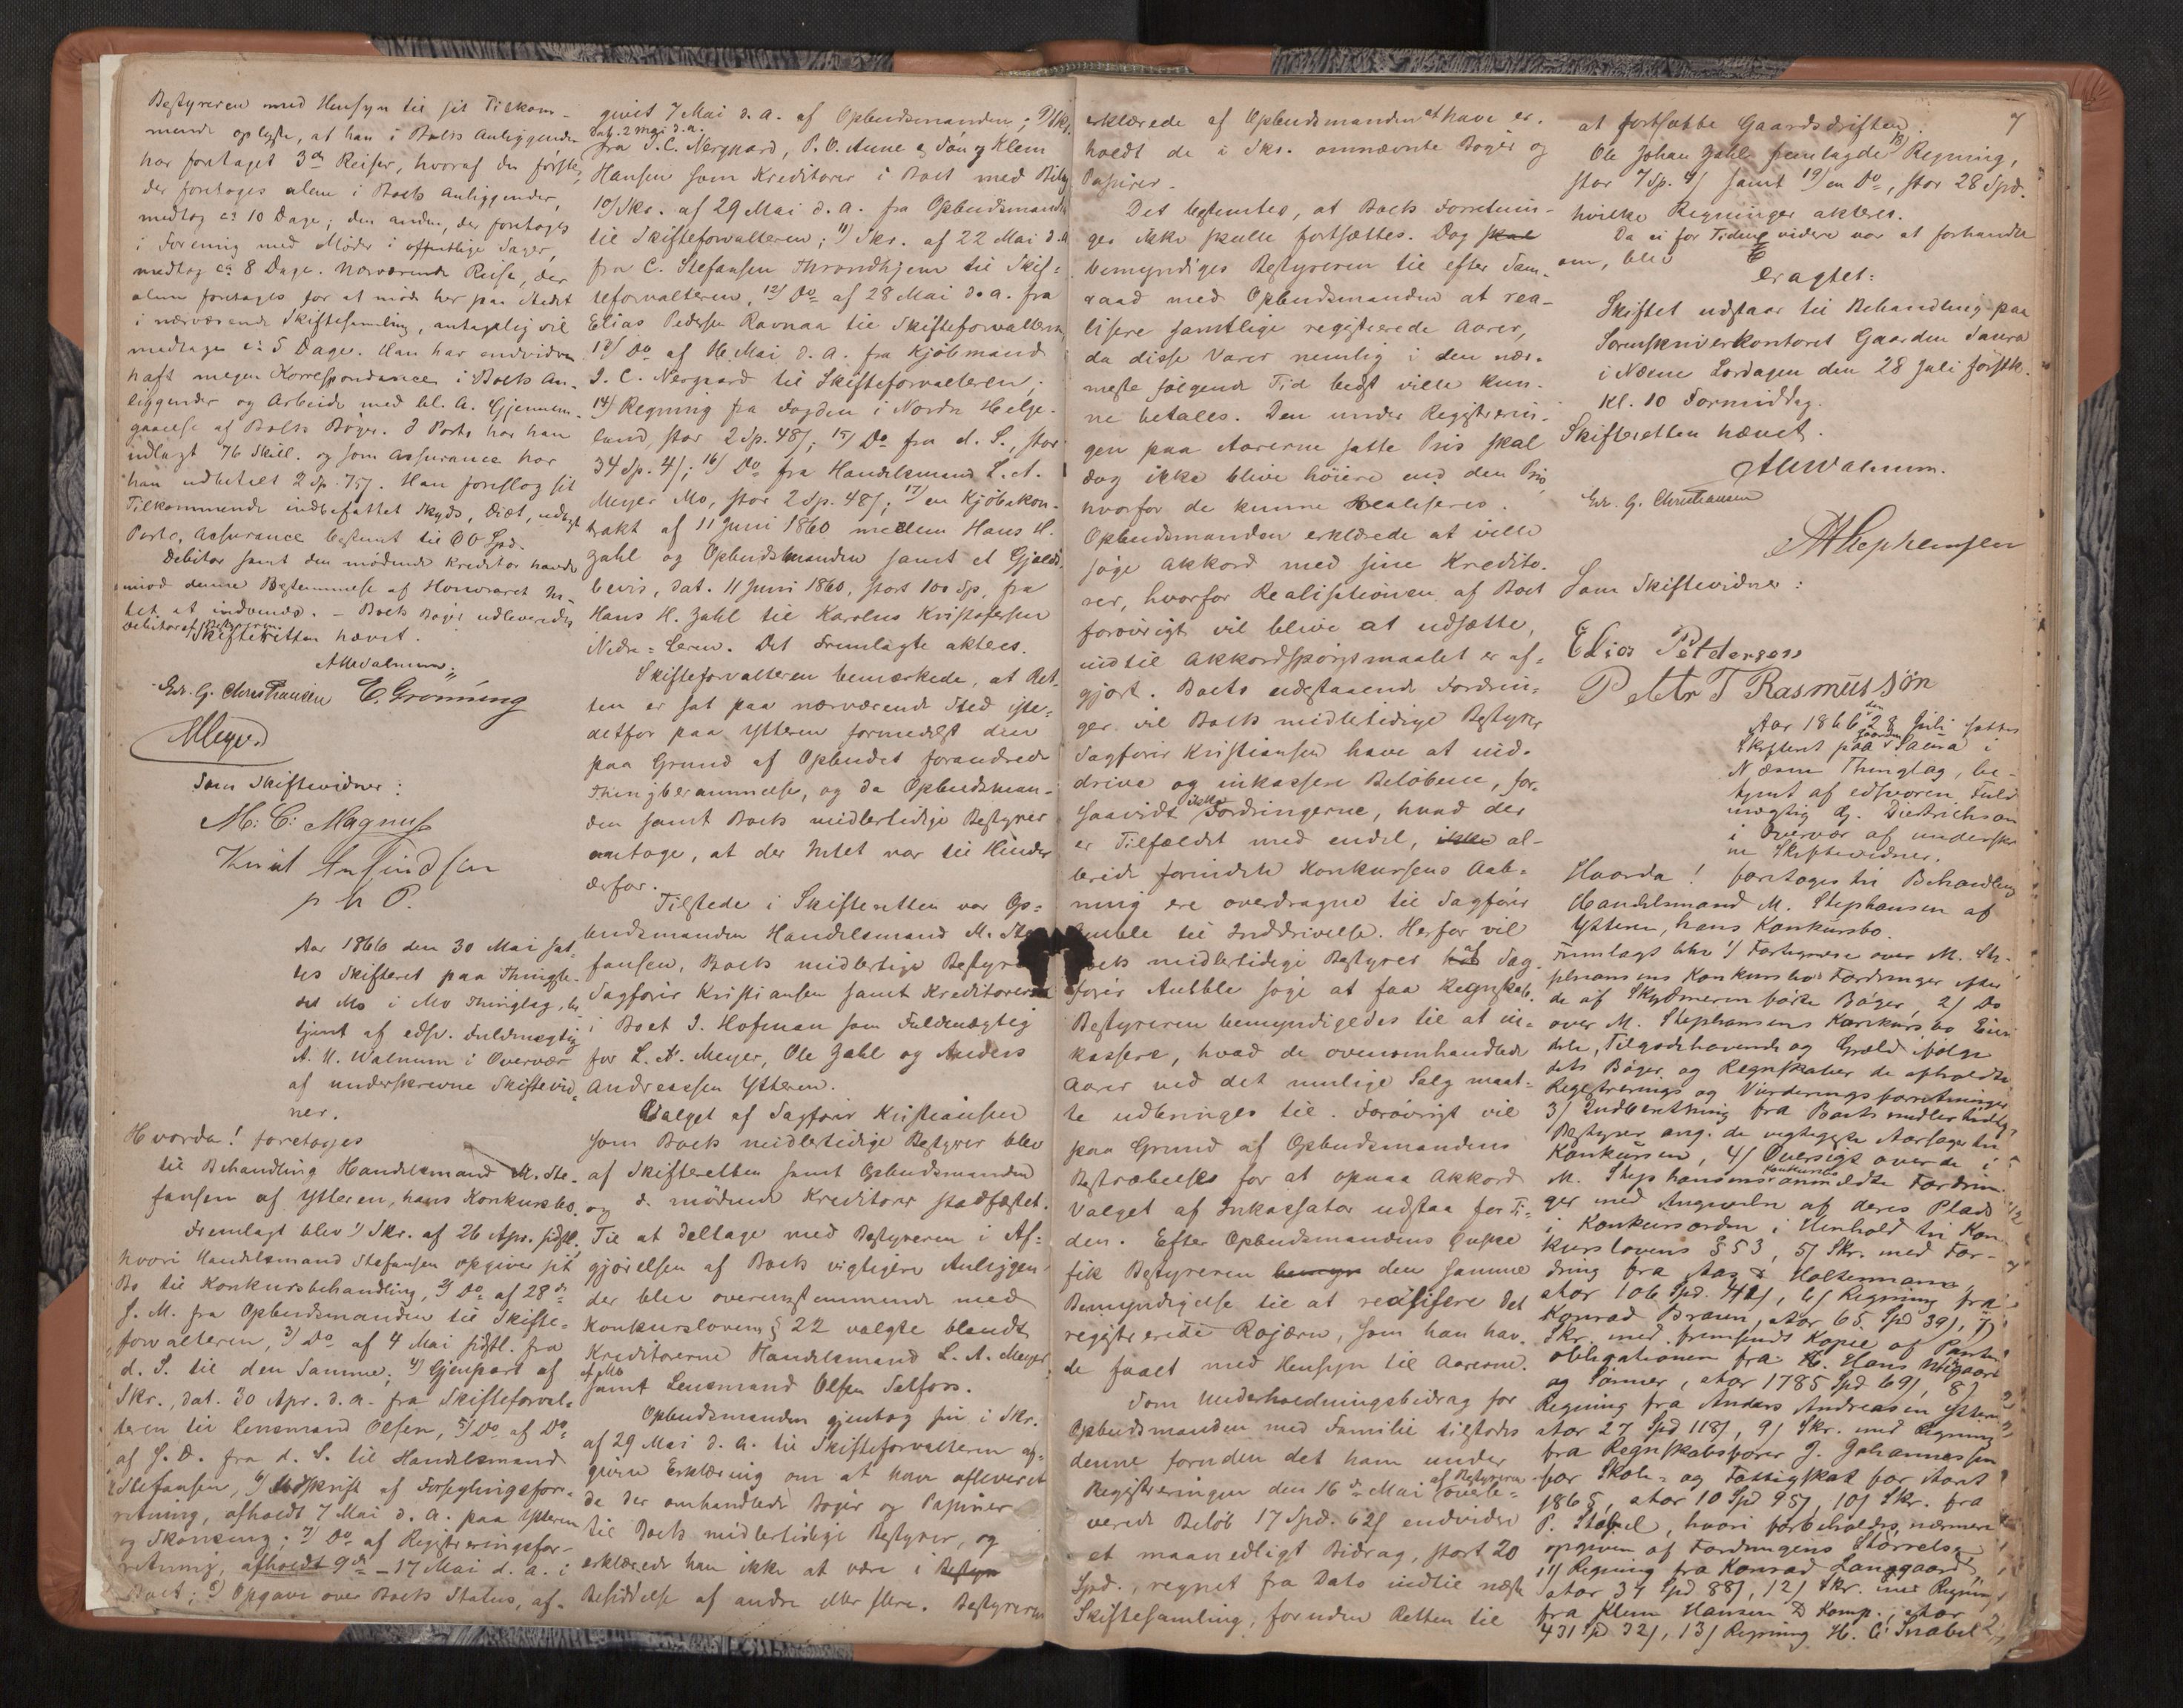 Bestyreren med Hensyn til sit Tilkom-
mende oplyste, at han i Boets Anliggender
har foretaget 3de Reiser, hvoraf den første,
der foretoges alene i Boets Anliggender,
medtog ca 10 Dage; den anden, der foretoges
i Forening med Møder i offentlige Sager,
medtog ca 8 Dage. Nærværende Reise, der
alene foretages for at møde her paa Stedet
i nærværende Skiftesamling, antagelig vil
medtage ca 5 Dage. Han har endvidere
haft megen Korrespondance i Boets An-
liggender og Arbeide med bl. A. Gjennem-
gaaelse af Boets Bøger. I Porto har han
udlagt 76 Skill. og som Assurance har
han udbetalt 2 Sp. 75ʃ. Han foreslog sit
Tilkommende indbefattet Skyds, Diæt, udlagt
Porto, Assurance bestemt til 60 Spd.
Debitor samt den mødende Kreditor havde
imod denne Bestemmelse af Honoraret In-
tet at indvende. – Boets Bøger udleveredes
Skifteretten hævet.
AUWalnum
Edv. G. Christiansen E. Grønning
Meyer
Som Skiftevidner:
M: C: Magnus
Knut
p h P.
Aar 1866 den 30 Mai sat-
tes Skifteret paa Thingste-
det Mo i Mo Thinglag, be-
tjent af edsv. Fuldmægtig
A. U. Walnum i Overvær
af underskrevne Skiftevid-
ner.
Hvorda! foretoges
til Behandling Handelsmand M. Ste-
fansen af Ytteren, hans Konkursbo.
Fremlagt blev 1) Skr. af 26 Apr. sidstl.
hvori Handelsmand Stefansen opgiver sit
Bo til Konkursbehandling, 2) Do af 28de
s. M. fra Opbudsmanden til Skifte-
forvalteren, 3) Do af 4 Mai sidstl. fra
d. S. til den Samme; 4) Gjenpart af
Skr., dat. 30 Apr. d. a. fra Skifteforval-
teren til Lensmand Olsen, 5) Do af Do
af s. D. fra d. S. til Handelsmand
Stefansen, 6) Udskrift af Forseglingsfor-
retning, afholdt 7 Mai d. a. paa Ytteren
og Skonseng; 7) Do af Registreringsfor-
retning, afholdt 9de – 17 Mai d. a. i
Boet; 8) Opgave over Boets Status, af-
givet 7 Mai d. a. af Opbudsmanden; 9) Skr.
dat. 2 Mai d. a.
fra I. C. Nergaard, P. O. Aune & Søn og Klem
Hansen som Kreditorer i Boet med Bilag
10) Skr. af 29 Mai d. a. fra Opbudsmanden
til Skifteforvalteren; 11) Skr. af 22 Mai d. a.
fra C. Stefansen Throndhjem til Skif-
teforvalteren, 12) Do af 28 Mai d. a. fra
Elias Pedersen Ravnaa til Skifteforvalteren,
13) Do af 16 Mai d. a. fra Kjøbmand
I. C. Nergaard til Skifteforvalteren;
14) Regning fra Fogden i Nordre Helge-
land, stor 2 Sp. 48ʃ; 15) Do fra d. S., stor
34 Sp. 4ʃ; 16) Do fra Handelsmand L. A.
Meyer Mo, stor 2 Sp. 48ʃ; 17) en Kjøbekon-
trakt af 11 Juni 1860 mellem Hans H.
Zahl og Opbudsmanden samt et Gjelds-
bevis, dat. 11 Juni 1860, stort 100 Sp. fra
Hans H. Zahl til Karolus Kristofersen
Nedre-Leren. Det Fremlagte akteres.
Skifteforvalteren bemærkede, at Ret-
ten er sat paa nærværende Sted iste-
detfor paa Ytteren formedelst den
paa Grund af Opbudet forandrede
Thingberammelse, og da Opbudsman-
den samt Boets midlertidige Bestyrer
antoge, at der Intet var til Hinder
derfor.
Tilstede i Skifteretten var Op-
budsmanden Handelsmand M. Ste-
fansen, Boets midlertige Bestyrer
Sagfører Kristiansen samt Kreditorerne
i Boet I. Hofman som Fuldmægtig
for L. A. Meyer, Ole Zahl og Anders
Andreassen Ytteren.
Valget af Sagfører Kristiansen
som Boets midlertidige Bestyrer blev
af Skifteretten samt Opbudsmanden
og d. mødende Kreditorer stadfæstet.
Til at deltage med Bestyreren i Af-
gjørelsen af Boets vigtigere Anliggen-
der blev overensstemmende med
Konkurslovens § 22 valgte blandt
Kreditorerne Handelsmand L. A. Meyer
af Mo
samt Lensmand Olsen Selfors.
Opbudsmanden gjentog sin i Skr.
af 29 Mai d. A. til Skifteforvalteren af-
givne Erklæring om at have afleveret
de der omhandlede Bøger og Papirer
til Boets midlertidige Bestyrer, og
erklærede han ikke at være i Bestyr
Besiddelse af andre eller flere. Bestyreren
erklærede af Opbudsmanden at have er-
holdt de i Skr. omnævnte Bøger og
Papirer.
Det bestemtes, at Boets Forretnin-
ger ikke skulle fortsættes. Dog skal
bemyndiges Bestyreren til efter Sam-
raad med Opbudsmanden at rea-
lisere samtlige registrerede Aarer,
da disse Varer nemlig i den nær-
meste følgende Tid bedst ville kun-
ne betales. Den under Registrerin-
gen paa Aarerne satte Pris skal
dog ikke blive høiere end den Pris,
hvorfor de kunne Realiseres.
Opbudsmanden erklærede at ville
søge Akkord med sine Kredito-
rer, hvorfor Realisationen af Boet
forøvrigt vil blive at udsætte,
indtil Akkordspørgsmaalet er af-
gjort. Boets udestaaende Fordrin-
ger vil Boets midletidige Bestyrer
Sagfører Kristiansen have at ind-
drive og inkassere Beløbene, for-
saavidt ikke Fordringerne, hvad der
er Tilfældet med endel, ikke al-
lerede forinden Konkursens Aab-
ning ere overdragne til Sagfører
Aubble til Inddrivelse. Herfor vil
Boets midlertidige Bestyrer hos af Sag-
fører Aubble søge at faa Regnskab.
Bestyreren bemyndigedes til at in-
kassere, hvad de ovenomhandlede
Aarer ved det mulige Salg maat-
te udbringes til. Forøvrigt vil
paa Grund af Opbudsmandens
Bestræbelser for at opnaa Akkord
Valget af Inkassator udstaa for Ti-
den. Efter Opbudsmandens Ønske
fik Bestyreren bemyn den samme
Bemyndigelse til at realisere det
registrerede Rojærn, som han hav-
de faaet med Hensyn til Aarerne.
Som Underholdningsbidrag for
Opbudsmanden med Familie tilstodes
denne foruden det ham under
Registreringen den 16de Mai af Bestyreren overle-
verede Beløb 17 Spd. 62ʃ endvidere
et maanedligt Bidrag, stort 20
Spd., regnet fra Dato indtil næste
Skiftesamling, foruden Retten til
7
at fortsætte Gaardsdriften.
Ole Johan Zahl fremlagde 18) Regning,
stor 7 Sp. 4ʃ samt 19) en Do, stor 28 Spd.
hvilke Regninger akteres.
Da ei for Tiden videre var at forhandle
om, blev
Eragtet:
Skiftet udstaar til Behandling paa
Sorenskriverkontoret Gaarden Saura
i Nesne Lørdagen den 28 Juli førstk.
Kl. 10 Formiddag.
Skifteretten hævet.
AUWalnum.
Edv. G. Christiansen
MStephensen
Som Skiftevidner:
Elias Peddersen
Petter T Rasmussøn
Aar 1866 den 28 Juli sattes
Skifteret paa Gaarden Saura i
Næsne Thinglag, be-
tjent af edsvoren Fuld-
mægtig G. Diedrichson
i Overvær af underskr
ne Skiftevidner.
Hvorda! foretoges til Behandling
Handelsmand M. Stephansen af
Ytteren, hans Konkursbo.
Fremlagt blev 1) Fortegnelse over M. Ste-
phansens Konkursbos Fordringer efter
de af Skyldneren førte Bøger, 2) Do
over M. Stephansens Konkursbo Eien-
dele, Tilgodehavende og Gjæld ifølge
dets Bøger og Regnskaber de afholdte
Registrerings og Vurderingsforretninger
3) Indberetning fra Boets midlertidige
Bestyrer ang. de vigtigste Aarsager til
Konkursen, 4) Oversigt over de i
M. Stephansens Konkursbo anmeldte Fordrin-
ger med Angivelse af deres Plads
i Konkursorden i Henhold til Kon-
kurslovens § 53, 5) Skr. med For-
dring fra Aas & Holtermann
stor 106 Spd. 42ʃ, 6) Regning fra
Konrad Braun, stor 65 Spd 39ʃ, 7)
Skr. med fremsendt Kopie af Pante-
obligationen fra H. Hans
og Sønner, stor 1785 Spd 69ʃ, 8)
Regning fra Anders Andreasen Ytteren
stor 27 Spd 118ʃ, 9) Skr. med Regning
fra Regnskabsfører J. Johannessen
for Skole- og Fattigskat for Aaret
1865, stor 10 Spd 95ʃ, 10) Skr. fra
P. Stabel, hvori forbeholdes nærmere
opgiven af Fordringens Størrelse
11) Regning fra Konrad Langgaard,
stor 34 Spd 88ʃ, 12) Skr. med Regning
fra Klem Hansen & Komp., stor
431 Spd 32ʃ, 13) Regning H. C. Snabel